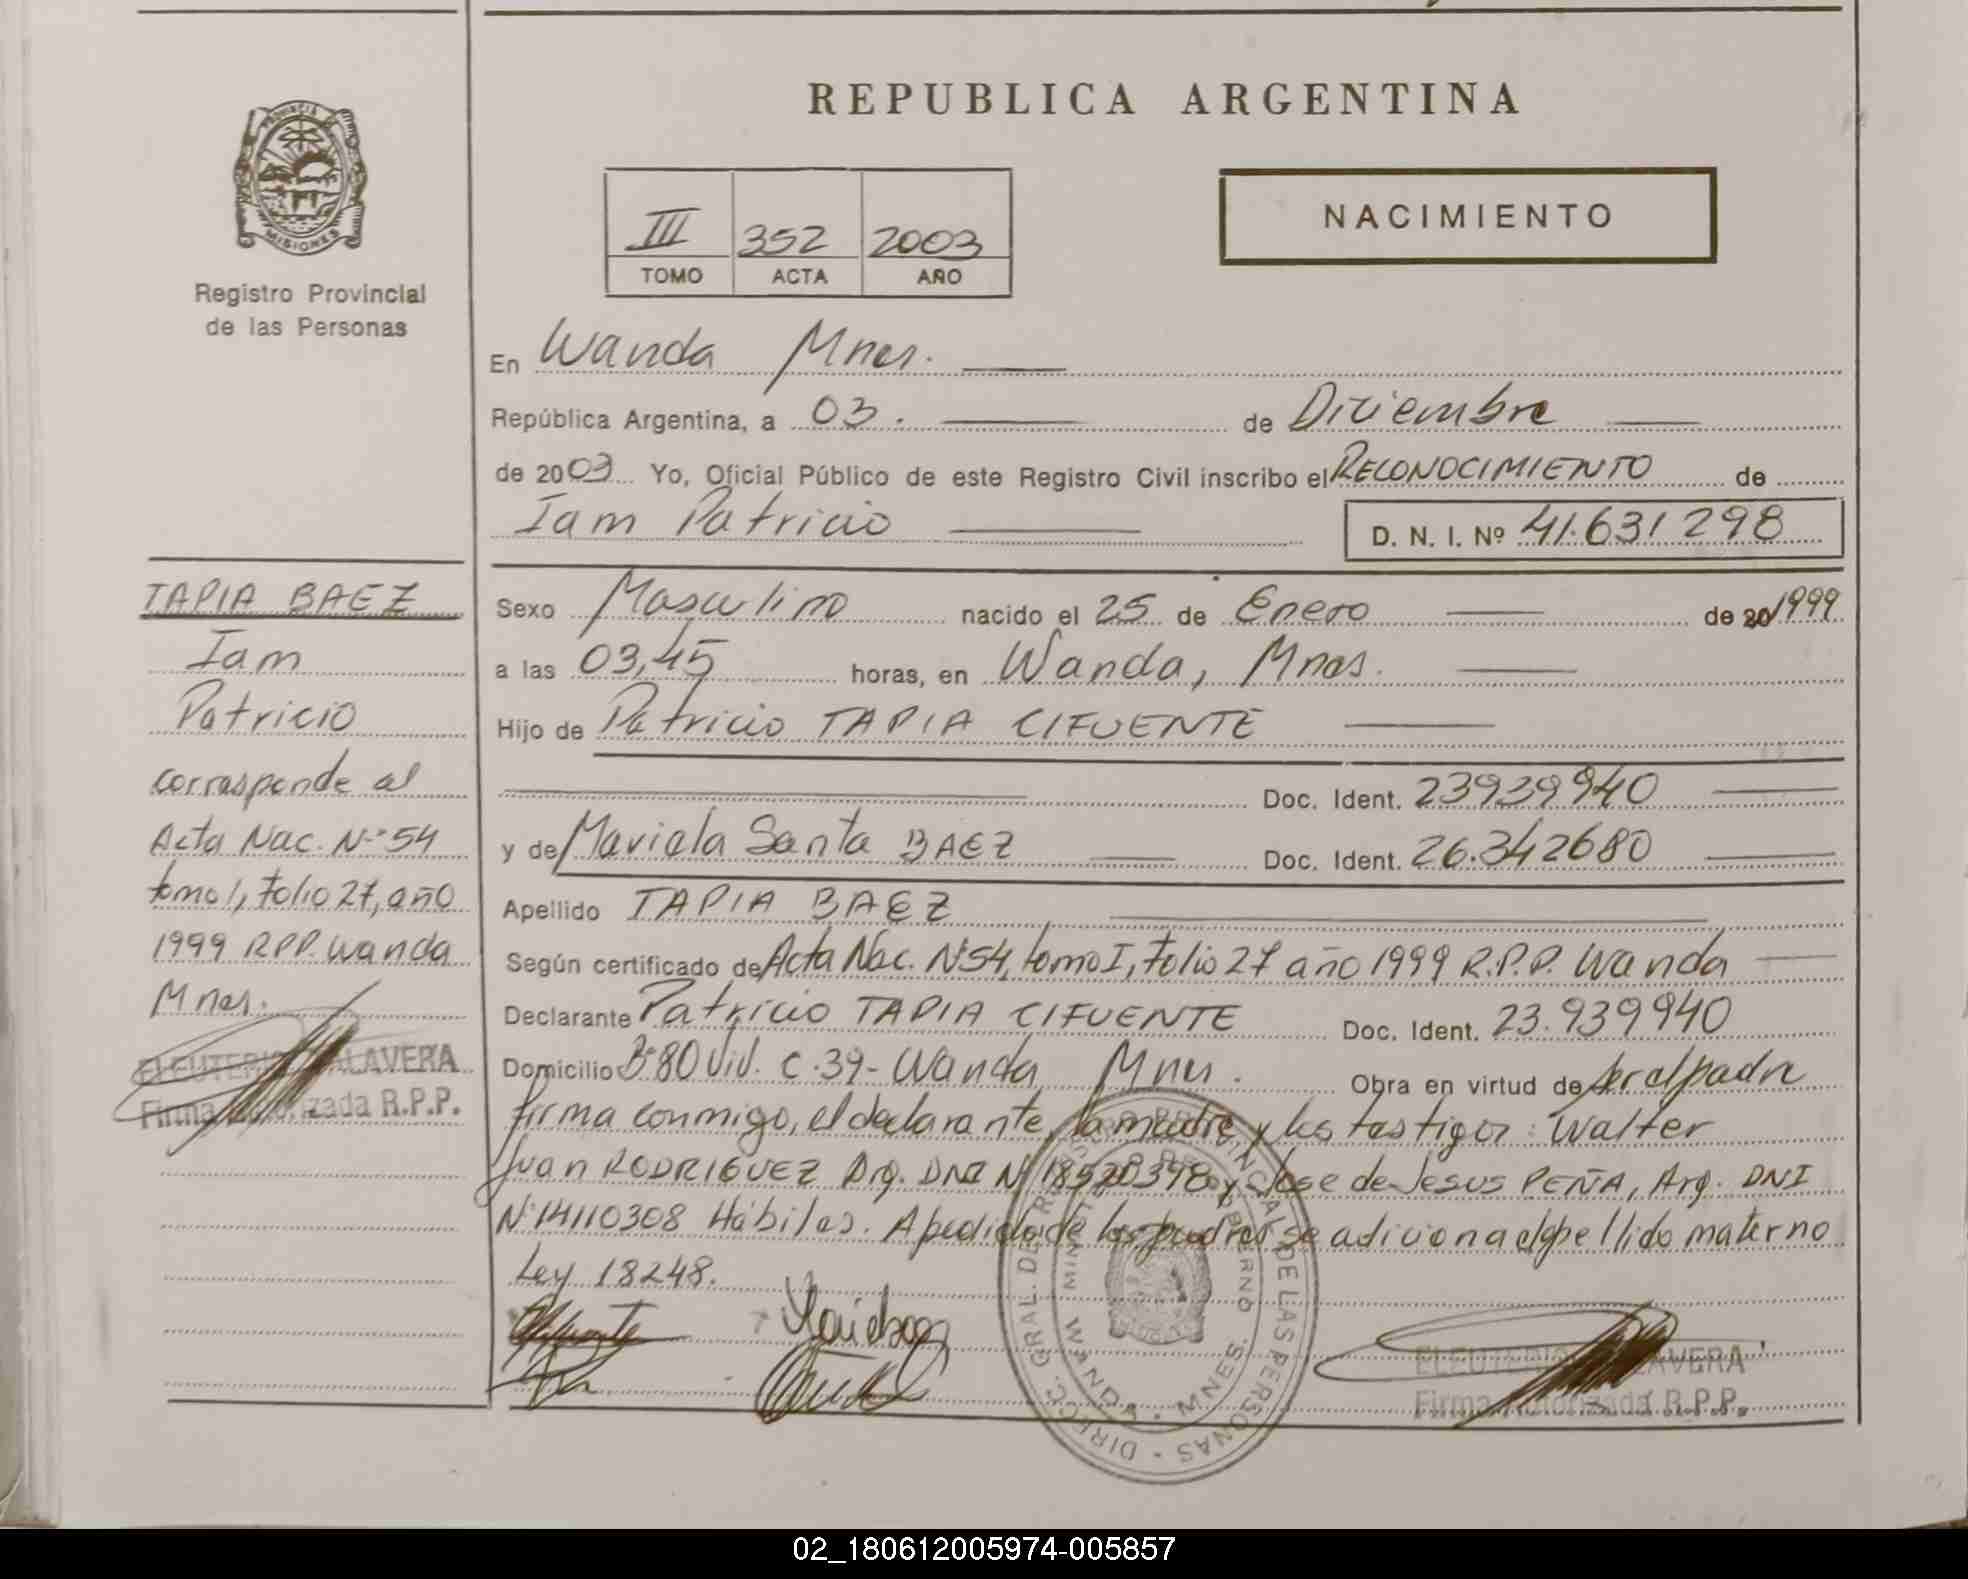 REPUBLICA ARGENTINA
PROVINCIA DE
MISIONES
Registro Provincial
de las Personas
III 352 2003
TOMO ACTA AÑO
NACIMIENTO
En Wanda Mnes.
República Argentina, a 03. de Diciembre
de 2003 Yo, Oficial Público de este Registro Civil inscribo el RECONOCIMIENTO de
Iam Patricio D. N. I. Nº 41.631298
Sexo Masculino nacido el 25 de Enero de 20 1999
a las 03,45 horas, en Wanda, Mnes.
Hijo de Patricio TAPIA CIFUENTE
Doc. Ident. 23939940
y de Mariela Santa BAEZ Doc. Ident. 26.342680
Apellido TAPIA BAEZ
Según certificado de Acta Nac. Nº54, tomo I, folio 27 año 1999 R.P.P. Wanda
Declarante Patricio TAPIA CIFUENTE Doc. Ident. 23.939940
Domicilio Bº80 Viv. C.39- Wanda Mnes. Obra en virtud de ser el padre
firma conmigo, el declarante, la madre y los testigos: Walter
Juan RODRIGUEZ Arg. DNI Nº 18520398 y Jose de Jesus PEÑA, Arg. DNI
Nº14110308 Hábiles. A pedido de los padres se adiciona el apellido materno
Ley 18248.
TAPIA BAEZ
Iam
Patricio
corresponde al
Acta Nac. Nº54
tomo I, folio 27, año
1999 RPP. Wanda
Mnes.
ELEUTERIO TALAVERA
Firma Autorizada R.P.P.
DIRECC. GRAL DE REGISTRO PROVINCIAL DE LAS PERSONAS
MINISTERIO DE GOBIERNO
WANDA - MNES.
ELEUTERIO TALAVERA
Firma Autorizada R.P.P.
02_180612005974-005857